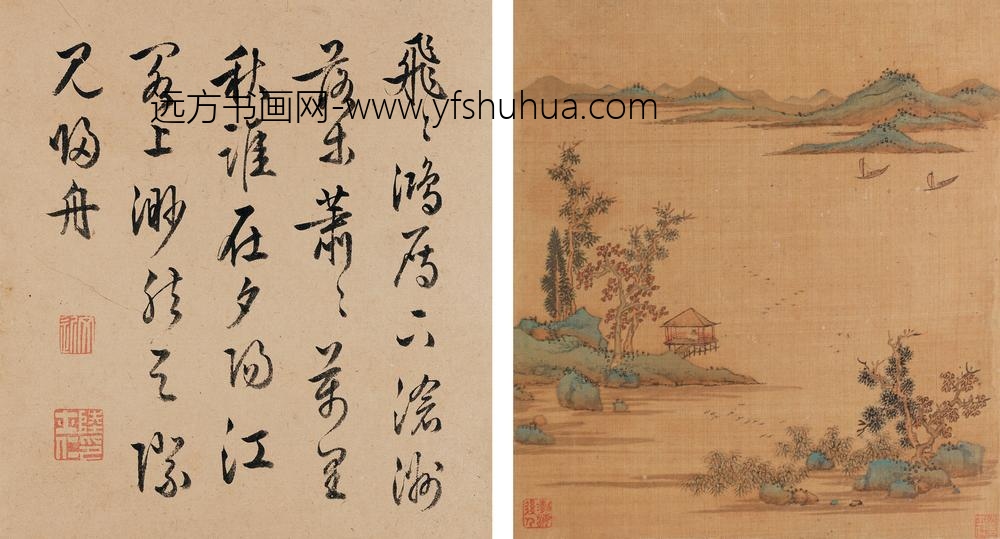 飛〻鴻雁下滄洲
落木蕭〻萬里
秋誰在夕陽江
閣上渺然天際
見歸舟
远方书画网-www.yfshuhua.com